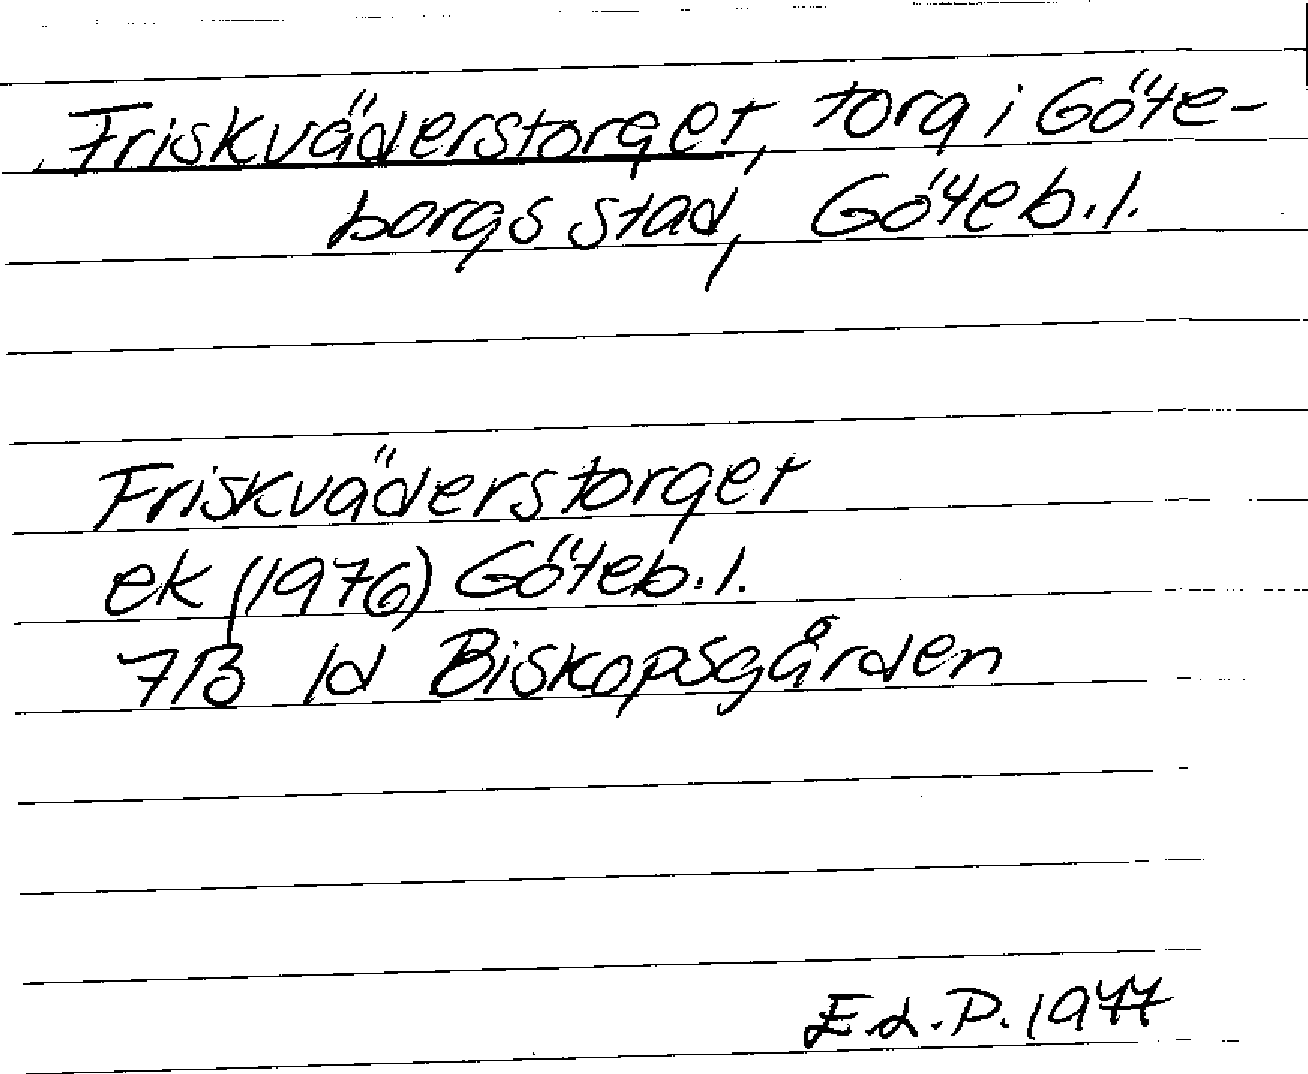 Friskväderstorget, torg i Göte-
borgs stad, Göteb. l.
Friskväderstorget
ek (1976) Göteb. l.
7B 1d Biskopsgården
E.L.P. 1977